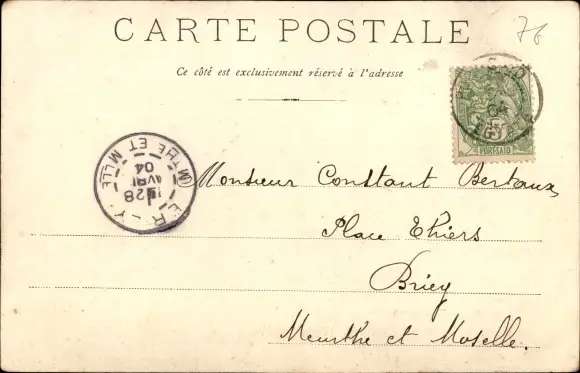 76
CARTE POSTALE
Ce côté est exclusivement réservé à l'adresse
5
PORT-SAÏD
MTHE ET MLLE
28
AVRIL
04
Monsieur Constant Bertaux
Place Thiers
Briey
Meurthe et Moselle.